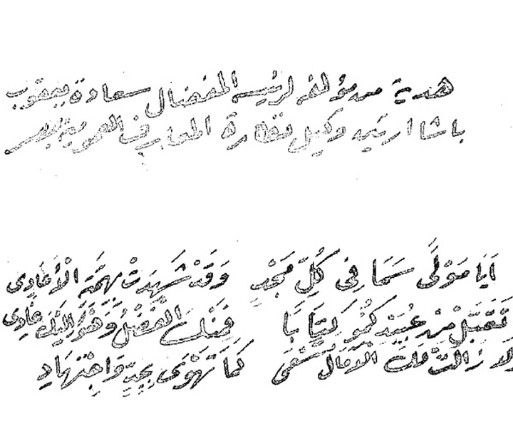 هدية من مؤلفه لرئيسه المفضال سعادة يعقوب
باشا ارتين وكيل نظارة المعارف العمومية بمصر
أيا مَوْلًى سَمَا فِي كُلِّ مَجْدٍ وَقَدْ شَهِدَتْ بِهِمَّتِهِ الْأَعَادِي
تَقَبَّلْ مِنْ عُبَيْدِكُمُو كِتَابًا فَمِنْكَ الفَضْلُ وَهْوَ إِلَيْكَ غَادِي
ولا زالت لك الآمال تسعى كَمَا تَهْوَى بِجِدٍّ وَاجْتِهَادِ